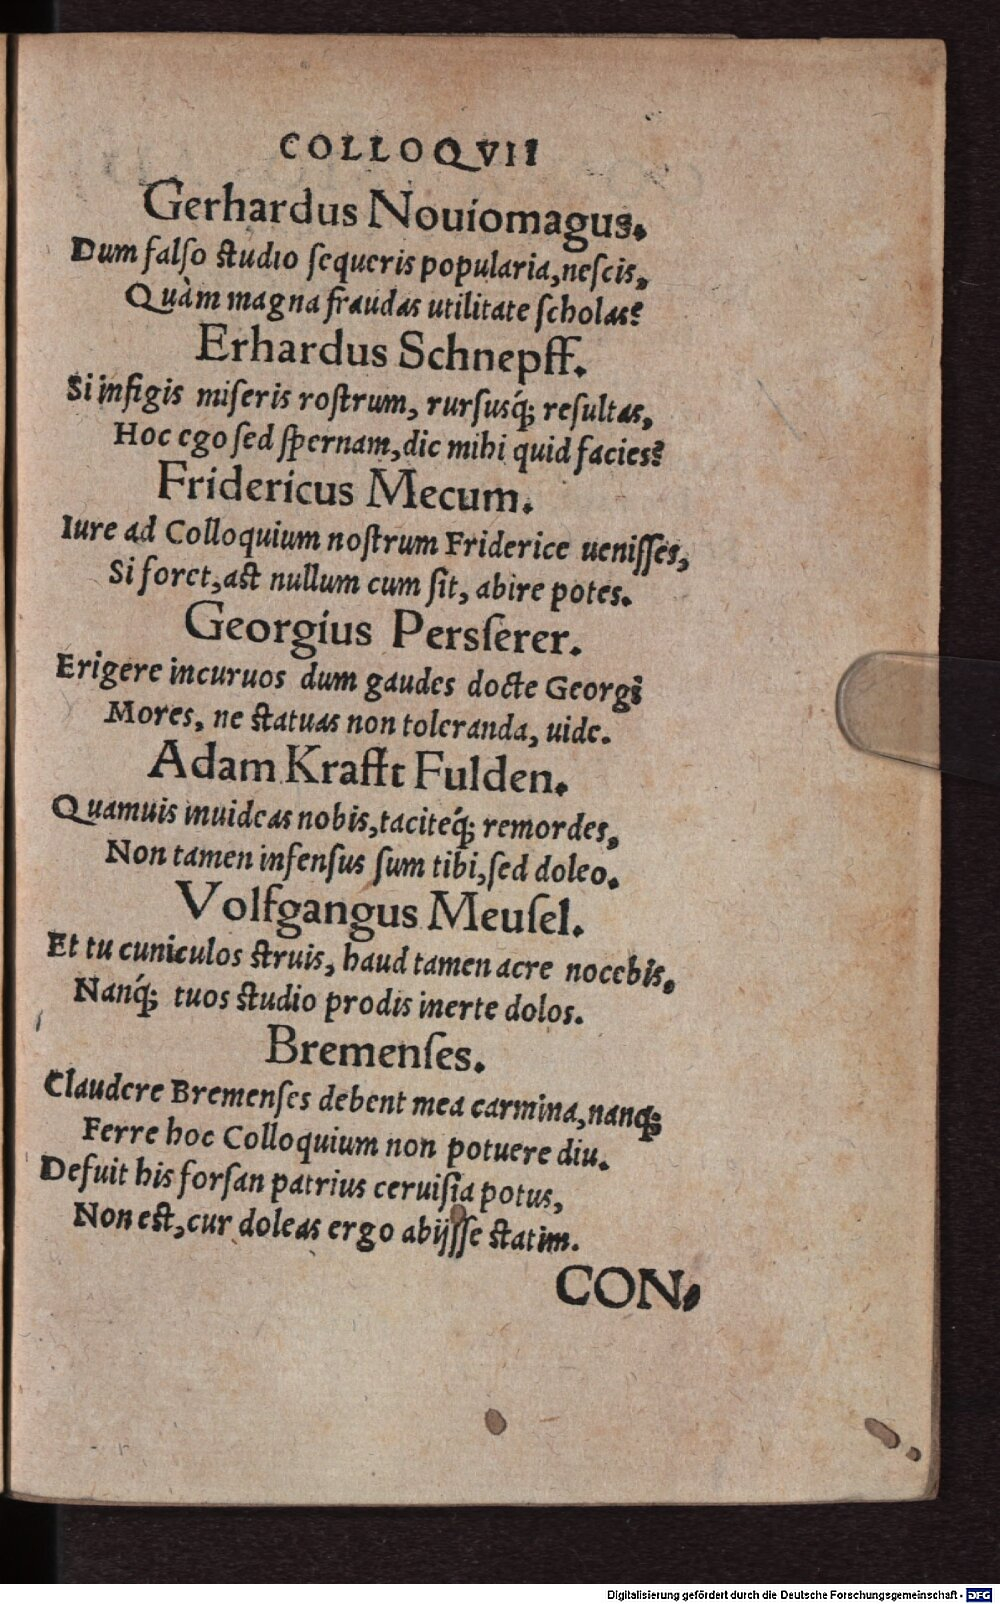 COLLOQVII
Gerhardus Nouiomagus.
Dum falſo ſtudio ſequeris popularia, neſcis,
Quàm magna fraudas utilitate ſcholas?
Erhardus Schnepff.
Si infigis miſeris roſtrum, rurſusq́; reſultas,
Hoc ego ſed ſpernam, dic mihi quid facies?
Fridericus Mecum.
Iure ad Colloquium noſtrum Friderice ueniſſes,
Si foret, aſt nullum cum ſit, abire potes.
Georgíus Persſerer.
Erigere incuruos dum gaudes docte Georgi
Mores, ne ſtatuas non toleranda, uide.
Adam Krafft Fulden.
Quamuis inuideas nobis, taciteq́; remordes,
Non tamen infenſus ſum tibi, ſed doleo.
Volfgangus Meuſel.
Et tu cuniculos ſtruis, haud tamen acre nocebis,
Nanq́; tuos ſtudio prodis inerte dolos.
Bremenſes.
Claudere Bremenſes debent mea carmina, nanq;
Ferre hoc Colloquium non potuere diu.
Defuit his forſan patrius ceruiſia potus,
Non eſt, cur doleas ergo abijſſe ſtatim.
CON,
Digitalisierung gefördert durch die Deutsche Forschungsgemeinschaft - DFG